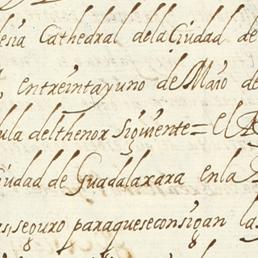 esia Cathedral dela Ciudad de
entreintayuno de Maio de
ula delthenor siguiente = el
iudad de Guadalaxara enla
as, seguro paraqueseconsigan las